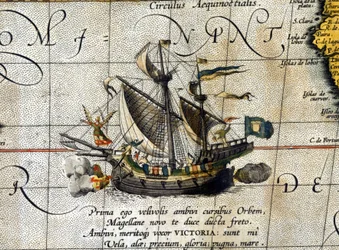 Circulus Aequinoctialis.
OMI-NINT
Isolas de lobos
Islas de lobo
C. de
R DE
Prima ego velivolis ambivi cursibus Orbem,
Magellane novo te duce ducta freto.
Ambivi, meritoq; vocor VICTORIA: sunt mi
Vela, alæ; precium, gloria; pugna, mare.